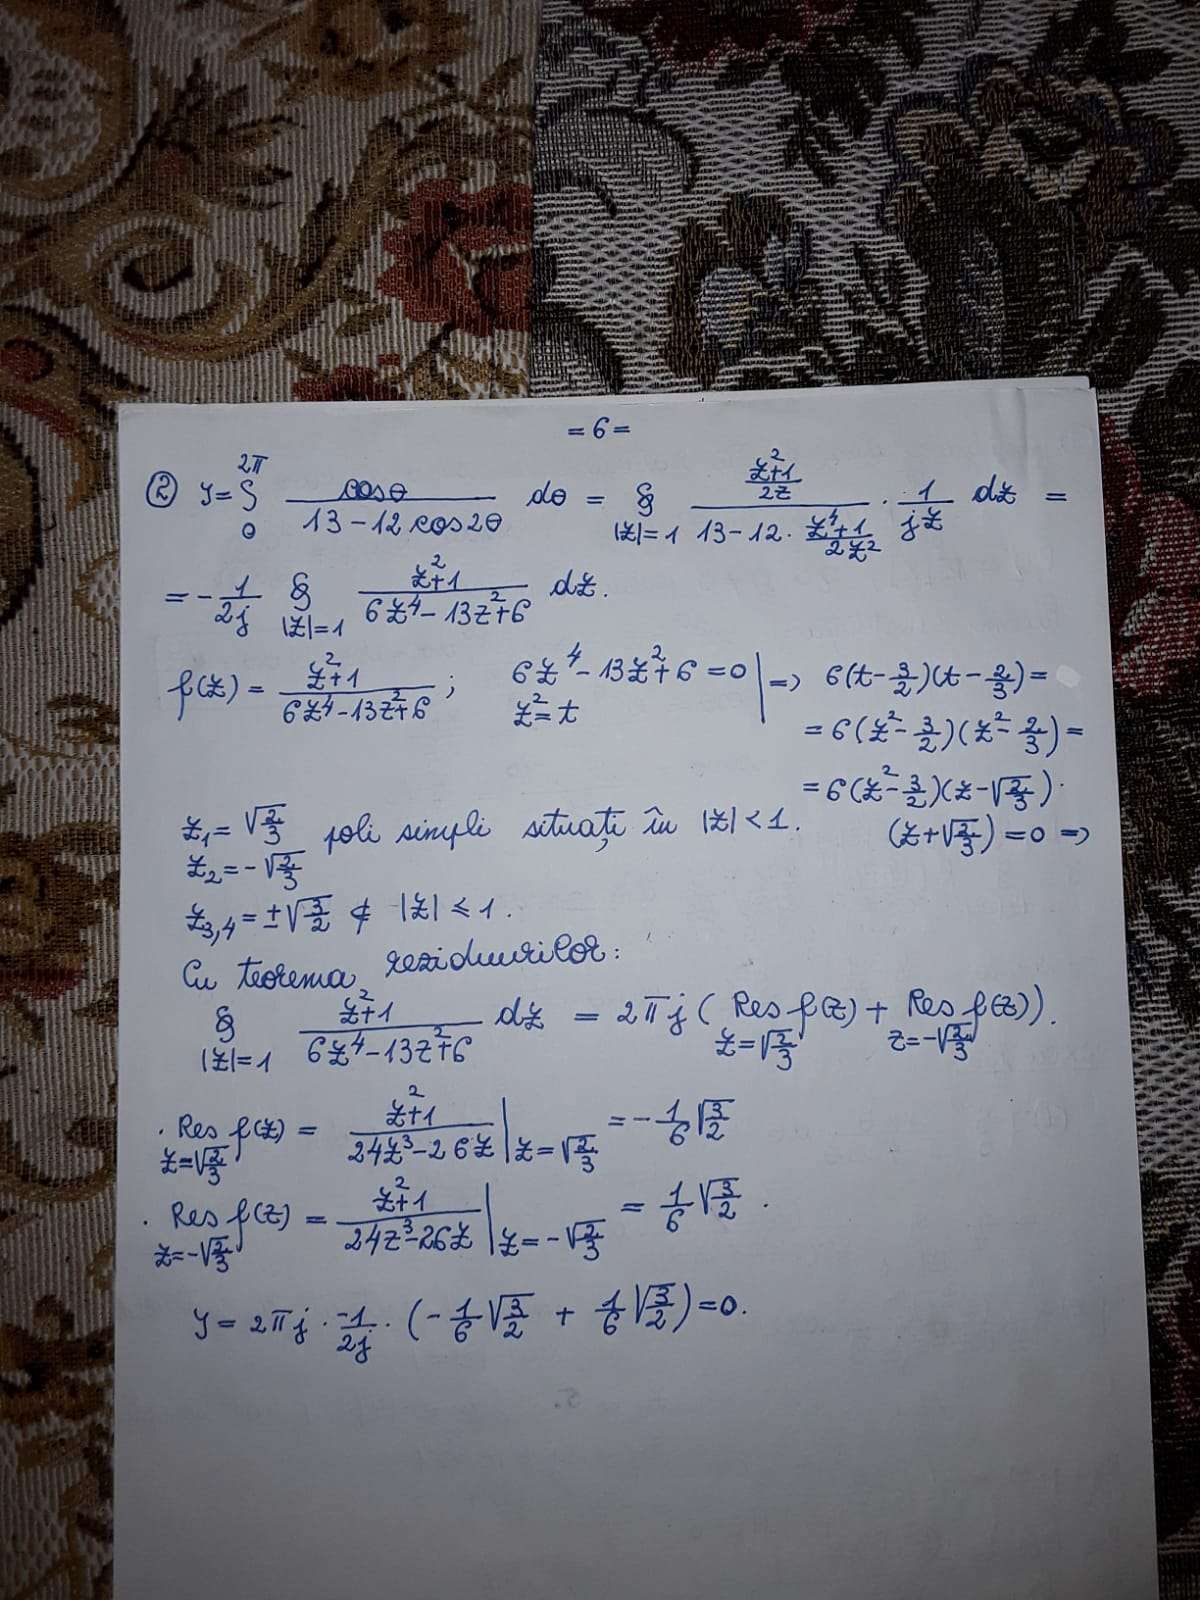 = 6 =
② Y = ∫₀^{2π} cosθ / (13 - 12 cos2θ) dθ = ∮_{|z|=1} ((z²+1)/(2z)) / (13 - 12 · (z⁴+1)/(2z²)) · 1/(jz) dz =
= - 1/(2j) ∮_{|z|=1} (z²+1)/(6z⁴ - 13z² + 6) dz.
f(z) = (z²+1)/(6z⁴ - 13z² + 6) ; 6z⁴ - 13z² + 6 = 0 | => 6(t - 3/2)(t - 2/3) =
z² = t
= 6(z² - 3/2)(z² - 2/3) =
= 6(z² - 3/2)(z - √(2/3)) ·
(z + √(2/3)) = 0 =>
z₁ = √(2/3) poli simpli situați în |z| < 1.
z₂ = -√(2/3)
z₃,₄ = ±√(3/2) ∉ |z| ≤ 1.
Cu teorema reziduurilor:
∮_{|z|=1} (z²+1)/(6z⁴ - 13z² + 6) dz = 2πj ( Res f(z) + Res f(z)).
z=√(2/3) z=-√(2/3)
· Res f(z) = (z²+1)/(24z³ - 26z) | z=√(2/3) = - 1/6 √(3/2)
z=√(2/3)
· Res f(z) = (z²+1)/(24z³ - 26z) | z=-√(2/3) = 1/6 √(3/2) .
z=-√(2/3)
Y = 2πj · -1/(2j) · (- 1/6 √(3/2) + 1/6 √(3/2)) = 0.